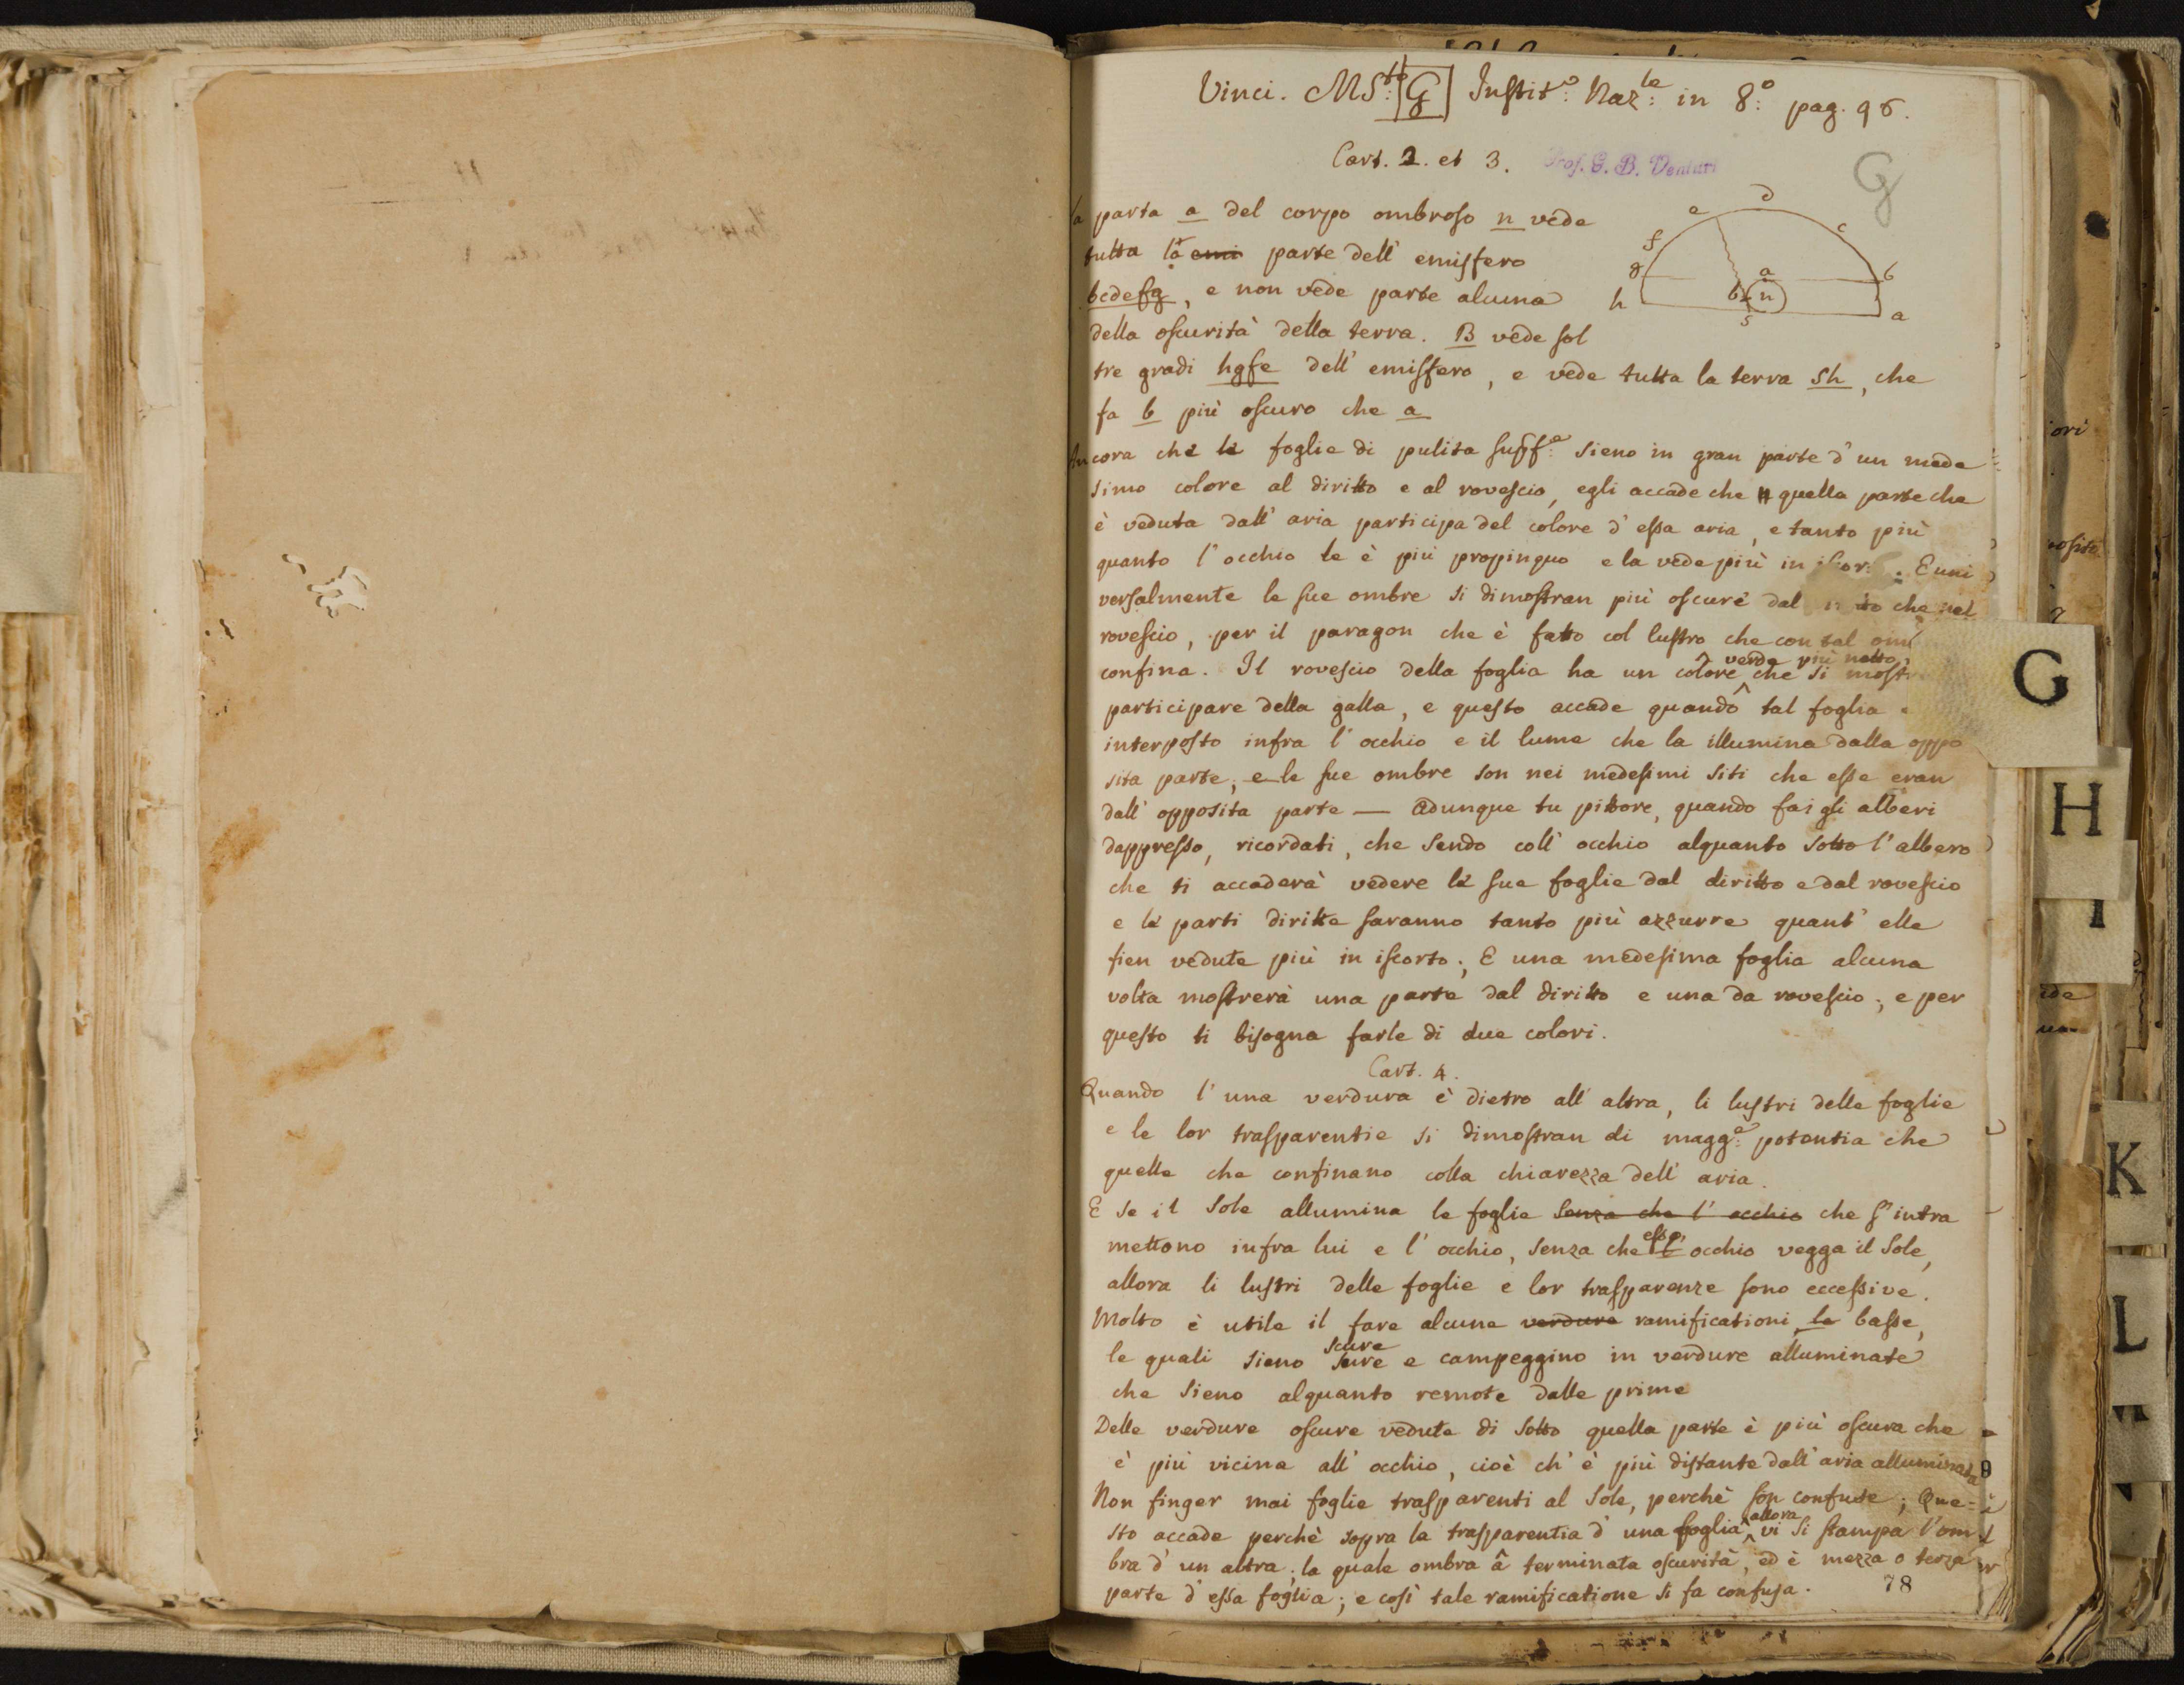 Vinci. MS.to: G Instit.o: Naz.le: in 8.o: pag. 96.
Cart. 2. et 3. Prof. G. B. Venturi
G
la parte a del corpo ombroso n vede
tutta la emi parte dell' emisfero
bcdefg, e non vede parte alcuna
della oscurità della terra. B vede sol
tre gradi hgfe dell' emisfero, e vede tutta la terra sh, che
fa b più oscuro che a
e d c f g b h a b n s a
Ancora che le foglie di pulita supf.e: sieno in gran parte d' un mede=
simo colore al diritto e al rovescio, egli accade che quella parte che
è veduta dall' aria participa del colore d' essa aria, e tanto più
quanto l' occhio le è più propinquo e la vede più in E uni
versalmente le sue ombre si dimostran più oscure dal che nel
rovescio, per il paragon che è fatto col lustro che con tal
confina. Il rovescio della foglia ha un colore verde più netto, che si
participare della galla, e questo accade quando tal foglia
interposto infra l' occhio e il lume che la illumina dalla oppo
sita parte; e le sue ombre son nei medesimi siti che esse eran
dall' opposita parte — Adunque tu pittore, quando fai gli alberi
dappresso, ricordati, che sendo coll' occhio alquanto sotto l' albero
che ti accaderà vedere le sue foglie dal diritto e dal rovescio
e le parti diritte saranno tanto più azzurre quant' elle
fien vedute più in iscorto; E una medesima foglia alcuna
volta mostrerà una parte dal diritto e una da rovescio; e per
questo ti bisogna farle di due colori.
Cart. 4.
Quando l' una verdura è dietro all' altra, li lustri delle foglie
e le lor trasparentie si dimostran di magg.e: potentia che
quelle che confinano colla chiarezza dell' aria.
E se il Sole allumina le foglie senza che l' occhio che s' intra
mettono infra lui e l' occhio, senza che esso l' occhio vegga il Sole,
allora li lustri delle foglie e lor trasparenze sono eccessive.
Molto è utile il fare alcune verdure ramificationi le basse,
le quali sieno scure scure e campeggino in verdure alluminate
che sieno alquanto remote dalle prime
Delle verdure oscure vedute di sotto quella parte è più oscura che
è più vicina all' occhio, cioè ch' è più distante dall' aria alluminata
Non finger mai foglie trasparenti al Sole, perchè son confuse; Que=
sto accade perchè sopra la trasparentia d' una foglia allora vi si stampa l' om
bra d' un altra; la quale ombra â terminata oscurità, ed è mezza o terza
parte d' essa foglia; e così tale ramificatione si fa confusa.
78
G
H
I
K
L